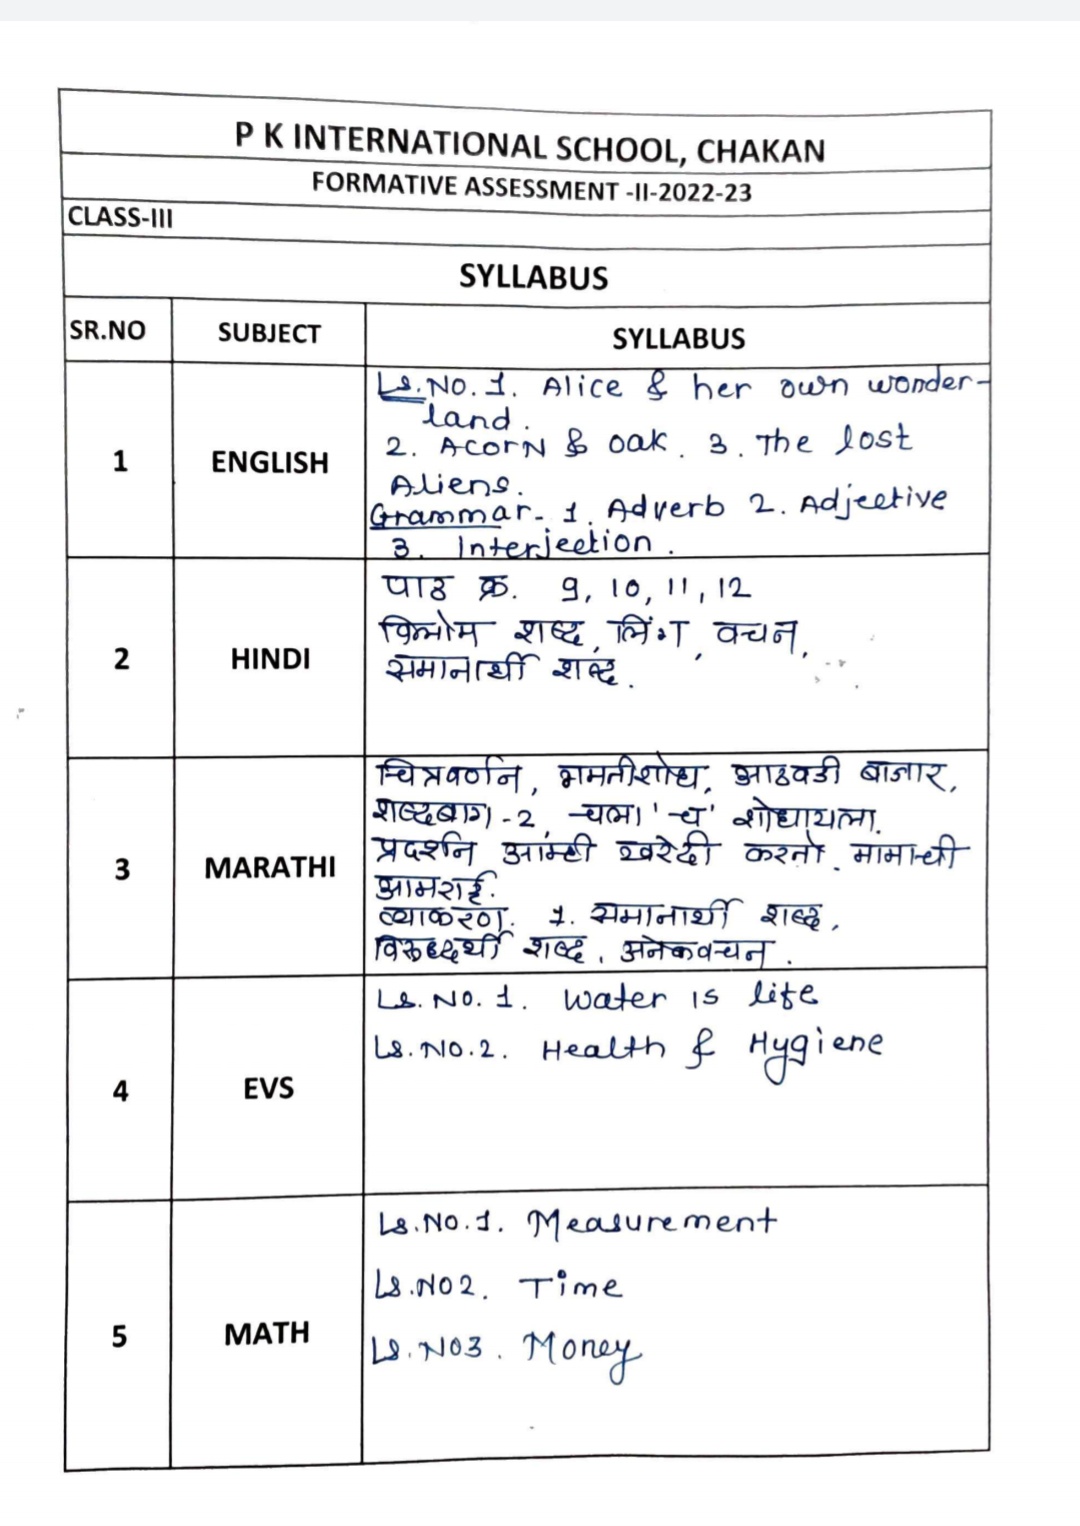 P K INTERNATIONAL SCHOOL, CHAKAN
FORMATIVE ASSESSMENT -II-2022-23
CLASS-III
SYLLABUS
SR.NO SUBJECT SYLLABUS
1 ENGLISH
Ls. No. 1. Alice & her own wonder-
land.
2. Acorn & oak. 3. The lost
Aliens.
Grammar- 1. Adverb 2. Adjective
3. Interjection.
2 HINDI
पाठ क्र. 9, 10, 11, 12
विलोम शब्द, लिंग, वचन,
समानार्थी शब्द.
3 MARATHI
चित्रवर्णन, गमतीशोध, आठवडी बाजार,
शब्दबाग-2, चला 'च' शोधायला.
प्रदर्शन आम्ही खरेदी करतो. मामाची
आमराई.
व्याकरण. 1. समानार्थी शब्द,
विरूध्दर्थी शब्द, अनेकवचन.
4 EVS
Ls. No. 1. Water is life
Ls. No. 2. Health & Hygiene
5 MATH
Ls. No. 1. Measurement
Ls. No 2. Time
Ls. No 3. Money